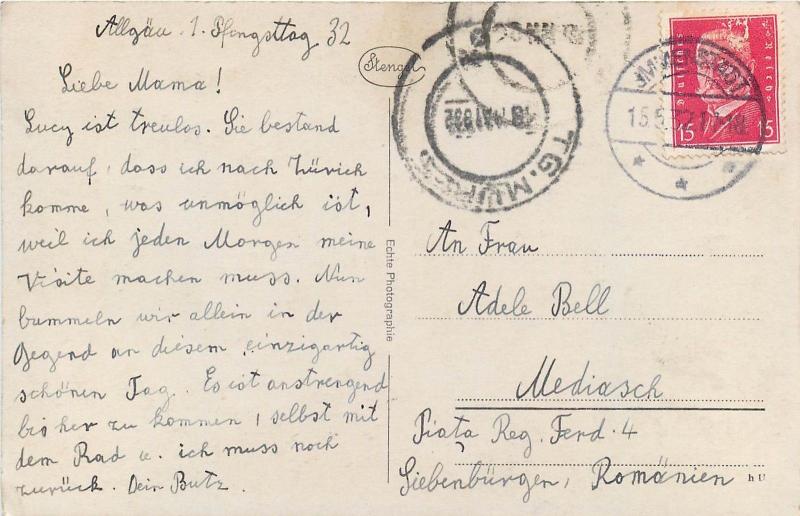 Allgäu 1. Pfingsttag 32
Liebe Mama!
Lucy ist treulos. Sie bestand
darauf, dass ich nach Zürich
komme, was unmöglich ist,
weil ich jeden Morgen meine
Visite machen muss. Nun
bummeln wir allein in der
Gegend an diesem einzigartig
schönen Tag. Es ist anstrengend
bis her zu kommen, selbst mit
dem Rad u. ich muss noch
zurück. Dein Butz.
Stengel
Echte Photographie
TG. MUREȘ
15.5.32
Deutsches Reich
15 15
An Frau
Adele Bell
Mediasch
Piața Reg. Ferd. 4
Siebenbürgen, Romänien
h U